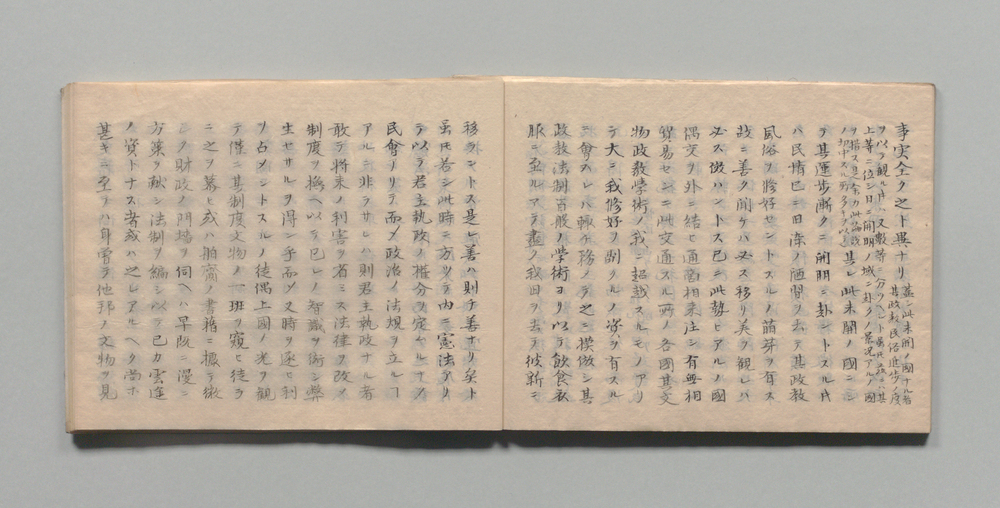 事実全ク之ト異ナリ
蓋シ此未開ノ國ナル者
上等ニ位シ日ニ開明ノ域ニ赴クノ景況アルノ國
其レ此未開ノ國ニシ
テ其運歩漸クニ開明ニ赴ントスル片
ハ民情已ニ旧来ノ陋習ヲ去テ其政教
風俗ヲ修好セントスルノ萠芽ヲ有ス
故ニ善ク聞ケバ必ス移リ美ヲ観レバ
必ス傚ハントス已ニ此勢ヒアルノ國
偶交ヲ外ニ結ヒ通商相来往シ有無相
貿易センニ此交通スル所ノ各國其文
物政教学術ノ我ニ超越スルモノアリ
テ大ニ我修好ヲ副クルノ姿ヲ有スル
ニ會スレハ輙チ務メテ之ニ模倣シ其
政教法制百般ノ学術ヨリ以テ飲食衣
服ニ至ルマテ盡ク我旧ヲ去テ彼新ニ
移ラントス是レ善ハ則チ善ナリ矣ト
虽モ若シ此時ニ方リテ内ニ憲法アリ
テ以テ君主執政ノ權分ヲ定ムルナク
民會アリテ而メ政治ノ法規ヲ立ルコ
アルニ非ラサレハ則君主執政ナル者
敢テ将来ノ利害ヲ省ミス法律ヲ改メ
制度ヲ換ヘ以テ已レノ智識ヲ衒シ弊
生セサルヲ得ン乎而メ又時ヲ逐ヒ利
ヲ占メントスルノ徒偶上國ノ光ヲ観
テ僅ニ其制度文物ノ一班ヲ窺ヒ徒ラ
ニ之ヲ慕ヒ或ハ舶齎ノ書籍ニ據テ微
シク財政ノ門墻ヲ伺ヘハ早既ニ漫ニ
方策ヲ献シ法制ヲ編シ以テ已カ雲逵
ノ資トナス者或ハ之レアルヘク尚ホ
甚キニ至テハ身曽テ他邦ノ文物ヲ見